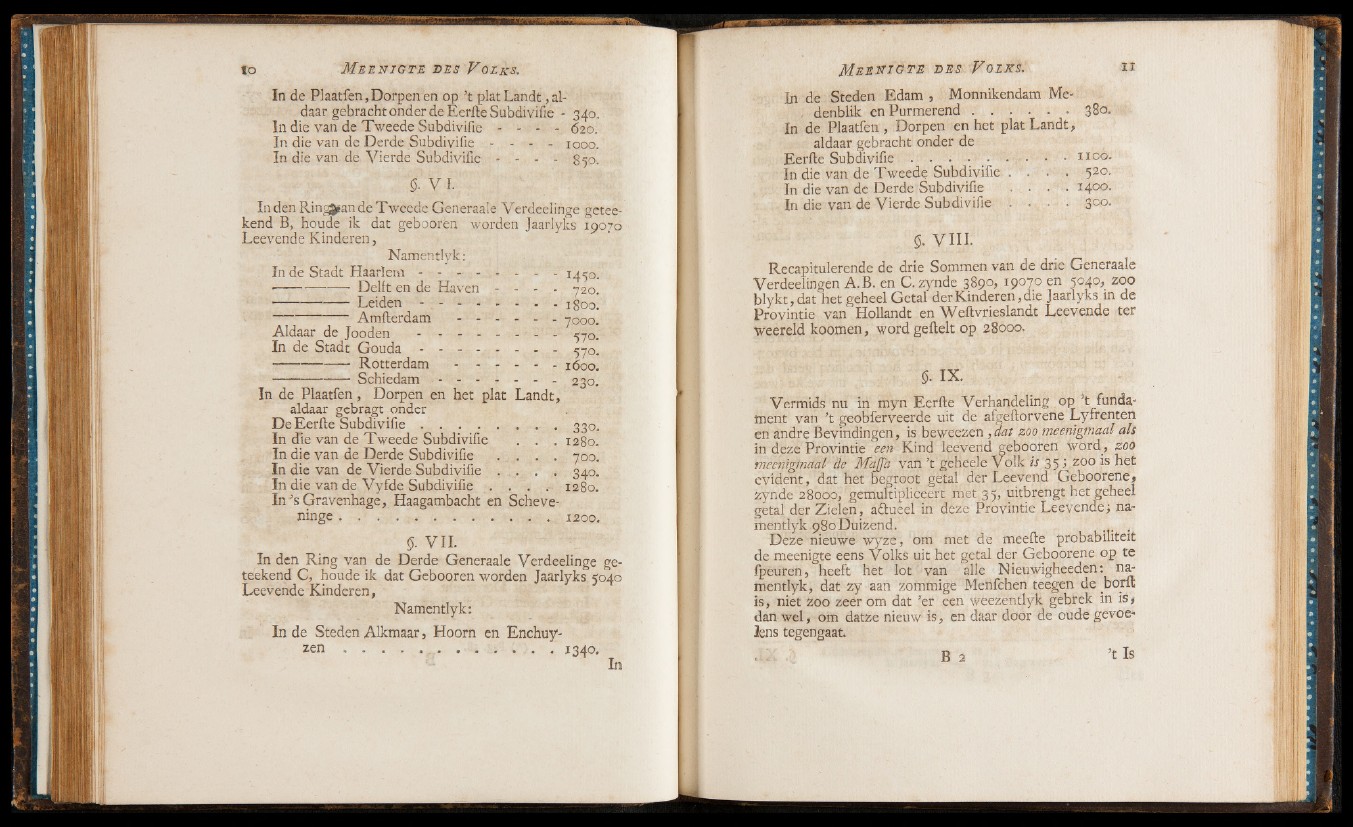 10 MEENIGTE DES VOLKS.
In de Plaatſen, Dorpen en op 't plat Landt, al-
daar gebracht onder de Eerſte Subdiviſie - 340.
In die van de Tweede Subdiviſie - - - - 620.
In die van de Derde Subdiviſie - - - - 1000.
In die van de Vierde Subdiviſie - - - - 850.
§. VI.
In den Ring van de Tweede Generaale Verdeelinge getee-
kend B, houde ik dat gebooren worden Jaarlyks 19070
Leevende Kinderen,
Namentlyk:
In de Stadt Haarlem - - - - - - - - 1450.
——— Delft en de Haven - - - - 720.
——— Leiden - - - - - - - - 1800.
——— Amſterdam - - - - - - 7000.
Aldaar de Jooden - - - - - - - - 570.
In de Stadt Gouda - - - - - - - - 570.
——— Rotterdam - - - - - - 1600.
——— Schiedam - - - - - - - 230.
In de Plaatſen, Dorpen en het plat Landt,
aldaar gebragt onder
De Eerſte Subdiviſie . . . . . . . . 330.
In die van de Tweede Subdiviſie . . . 1280.
In die van de Derde Subdiviſie . . . . 700.
In die van de Vierde Subdiviſie . . . . 340.
In die van de Vyfde Subdiviſie . . . . 1280.
In 's Gravenhage, Haagambacht en Scheve-
ninge . . . . . . . . . . . . 1200.
§. VII.
In den Ring van de Derde Generaale Verdeelinge ge-
teekend C, houde ik dat Gebooren worden Jaarlyks 5040
Leevende Kinderen,
Namentlyk:
In de Steden Alkmaar, Hoorn en Enchuy-
zen . . . . . . . . . . . . 1340.
In
MEENIGTE DES VOLKS. 11
In de Steden Edam, Monnikendam Me-
denblik en Purmerend . . . . . . 380.
In de Plaatſen, Dorpen en het plat Landt,
aldaar gebracht onder de
Eerſte Subdiviſie . . . . . . . . . 1100.
In die van de Tweede Subdiviſie . . . . 520.
In die van de Derde Subdiviſie . . . . 1400.
In die van de Vierde Subdiviſie . . . . 300.
§. VIII.
Recapitulerende de drie Sommen van de drie Generaale
Verdeelingen A. B. en C. zynde 3890, 19070 en 5040, zoo
blykt, dat het geheel Getal der Kinderen, die Jaarlyks in de
Provintie van Hollandt en Weſtvrieslandt Leevende ter
weereld koomen, word geſtelt op 28000.
§. IX.
Vermids nu in myn Eerſte Verhandeling op 't funda-
ment van 't geobſerveerde uit de afgeſtorvene Lyfrenten
en andre Bevindingen, is beweezen, dat zoo meenigmaal als
in deze Provintie een Kind leevend gebooren word, zoo
meenigmaal de Maſſa van 't geheele Volk is 35; zoo is het
evident, dat het begroot getal der Leevend Geboorene,
zynde 28000, gemultipliceert met 35, uitbrengt het geheel
getal der Zielen, actuëel in deze Provintie Leevende; na-
mentlyk 980 Duizend.
Deze nieuwe wyze, om met de meeſte probabiliteit
de meenigte eens Volks uit het getal der Geboorene op te
ſpeuren, heeft het lot van alle Nieuwigheeden: na-
mentlyk, dat zy aan zommige Menſchen teegen de borſt
is, niet zoo zeer om dat 'er een weezentlyk gebrek in is,
dan wel, om datze nieuw is, en daar door de oude gevoe-
lens tegengaat.
B 2 't Is